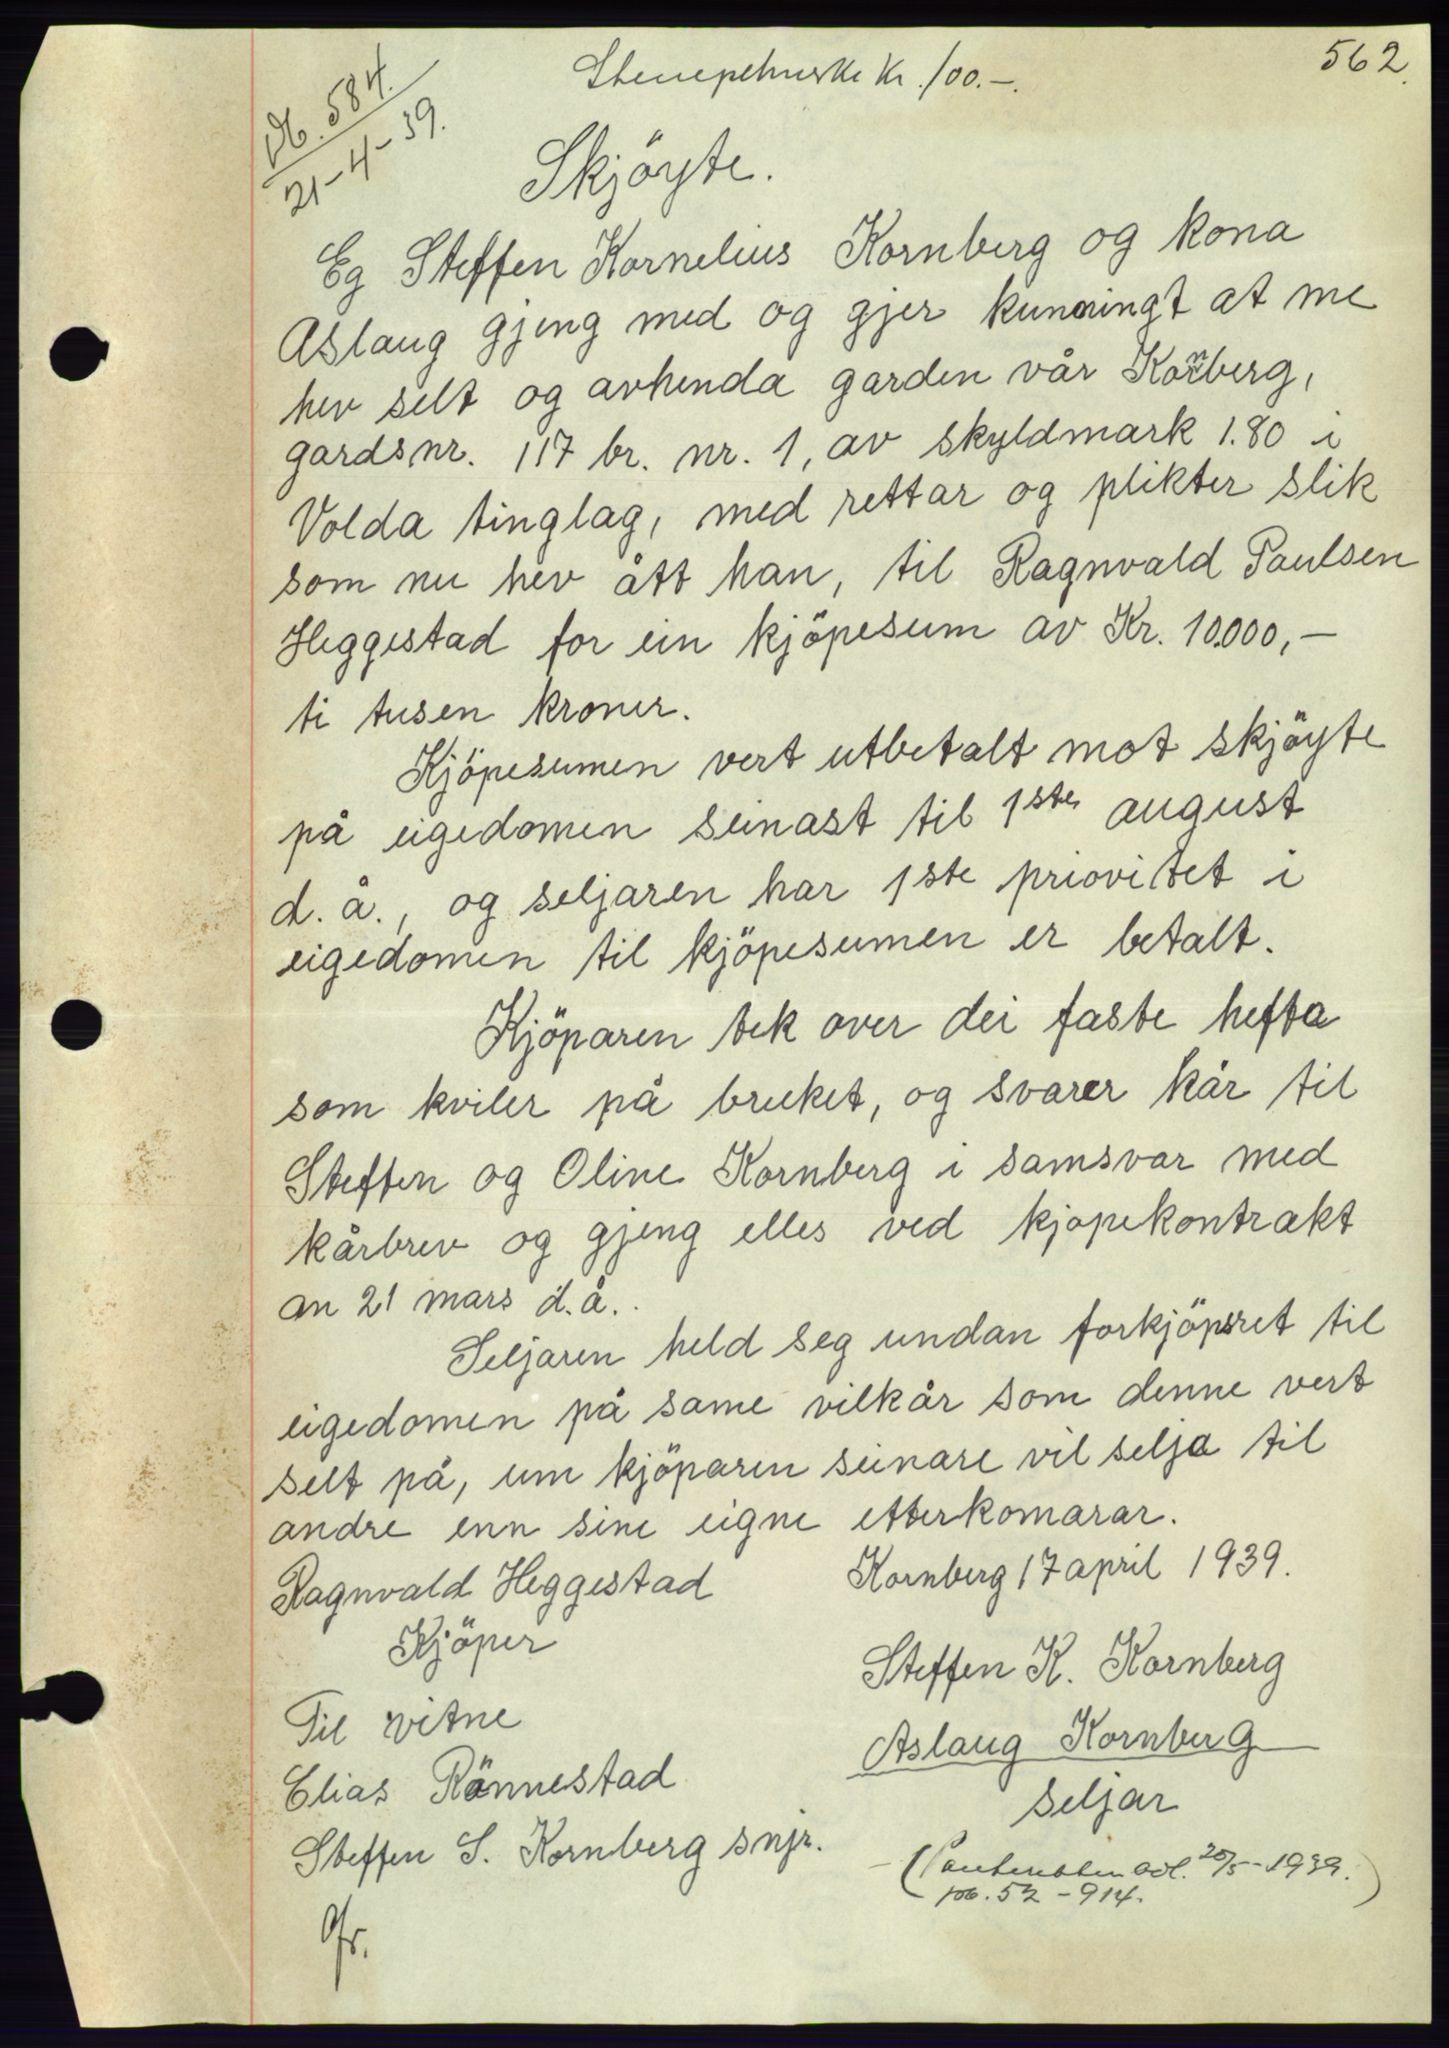 562.
Stempelmerke kr. 100.-.
Nr. 584.
21-4-39.
Skjöyte.
Eg Steffen Kornelius Kornberg og kona
Aslaug gjeng med og gjer kunningt at me
hev selt og avhenda garden vår Kornberg,
gardsnr. 117 br. nr. 1, av skyldmark 1.80 i
Volda tinglag, med rettar og plikter slik
som nu hev ått han, til Ragnvald Paulsen
Heggestad for ein kjöpesum av Kr. 10.000,-
ti tusen kroner.
Kjöpesumen vert utbetalt mot skjöyte
på eigedomen seinast til 1ste august
d. å., og seljaren har 1ste priovitet i
eigedomen til kjöpesumen er betalt.
Kjöparen tek over dei faste hefta
som kviler på bruket, og svarer kår til
Steffen og Oline Kornberg i samsvar med
kårbrev og gjeng elles ved kjøpekontrakt
an 21 mars d. å..
Seljaren held seg undan forkjöpsret til
eigedomen på same vilkår som denne vert
selt på, um kjöparen seinare vil selja til
andre enn sine eigne etterkomarar.
Kornberg 17 april 1939.
Ragnvald Heggestad
Kjöper
Steffen K. Kornberg
Aslaug Kornberg
seljar
Til vitne
Elias Rönnestad
Steffen S. Kornberg snjr.
(Panteobl. avl. 20/5-1939.
pb. 52 - 914.)